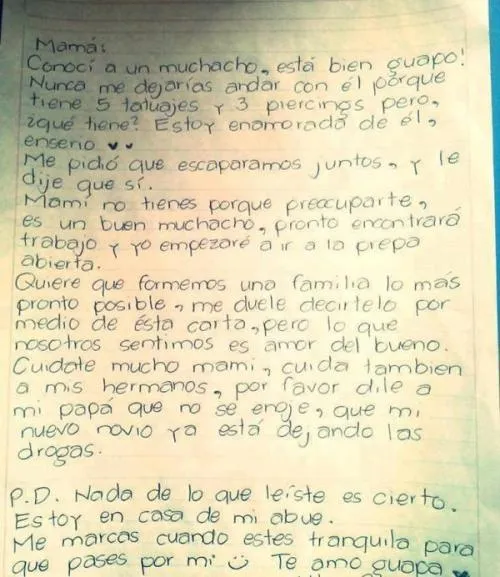 Mamá:
Conocí a un muchacho, está bien guapo!
Nunca me dejarías andar con él porque
tiene 5 tatuajes y 3 piercings pero,
¿qué tiene? Estoy enamorada de él,
enserio ♥♥
Me pidió que escaparamos juntos, y le
dije que sí.
Mami no tienes porque preocuparte,
es un buen muchacho, pronto encontrará
trabajo y yo empezaré a ir a la prepa
abierta.
Quiere que formemos una familia lo más
pronto posible, me duele decirtelo por
medio de ésta carta, pero lo que
nosotros sentimos es amor del bueno.
Cuidate mucho mami, cuida tambien
a mis hermanos, por favor dile a
mi papá que no se enoje, que mi
nuevo novio ya está dejando las
drogas.
P.D. Nada de lo que leíste es cierto.
Estoy en casa de mi abue.
Me marcas cuando estes tranquila para
que pases por mi ☺ Te amo guapa ♥